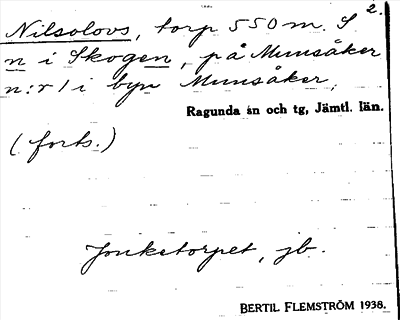 2.
Nilsolovs, torp 550 m. S
n i Skogen, på Munsåker
n:r 1 i byn Munsåker,
Ragunda sn och tg, Jämtl. län.
(forts.)
Jonketorpet, jb.
BERTIL FLEMSTRÖM 1938.